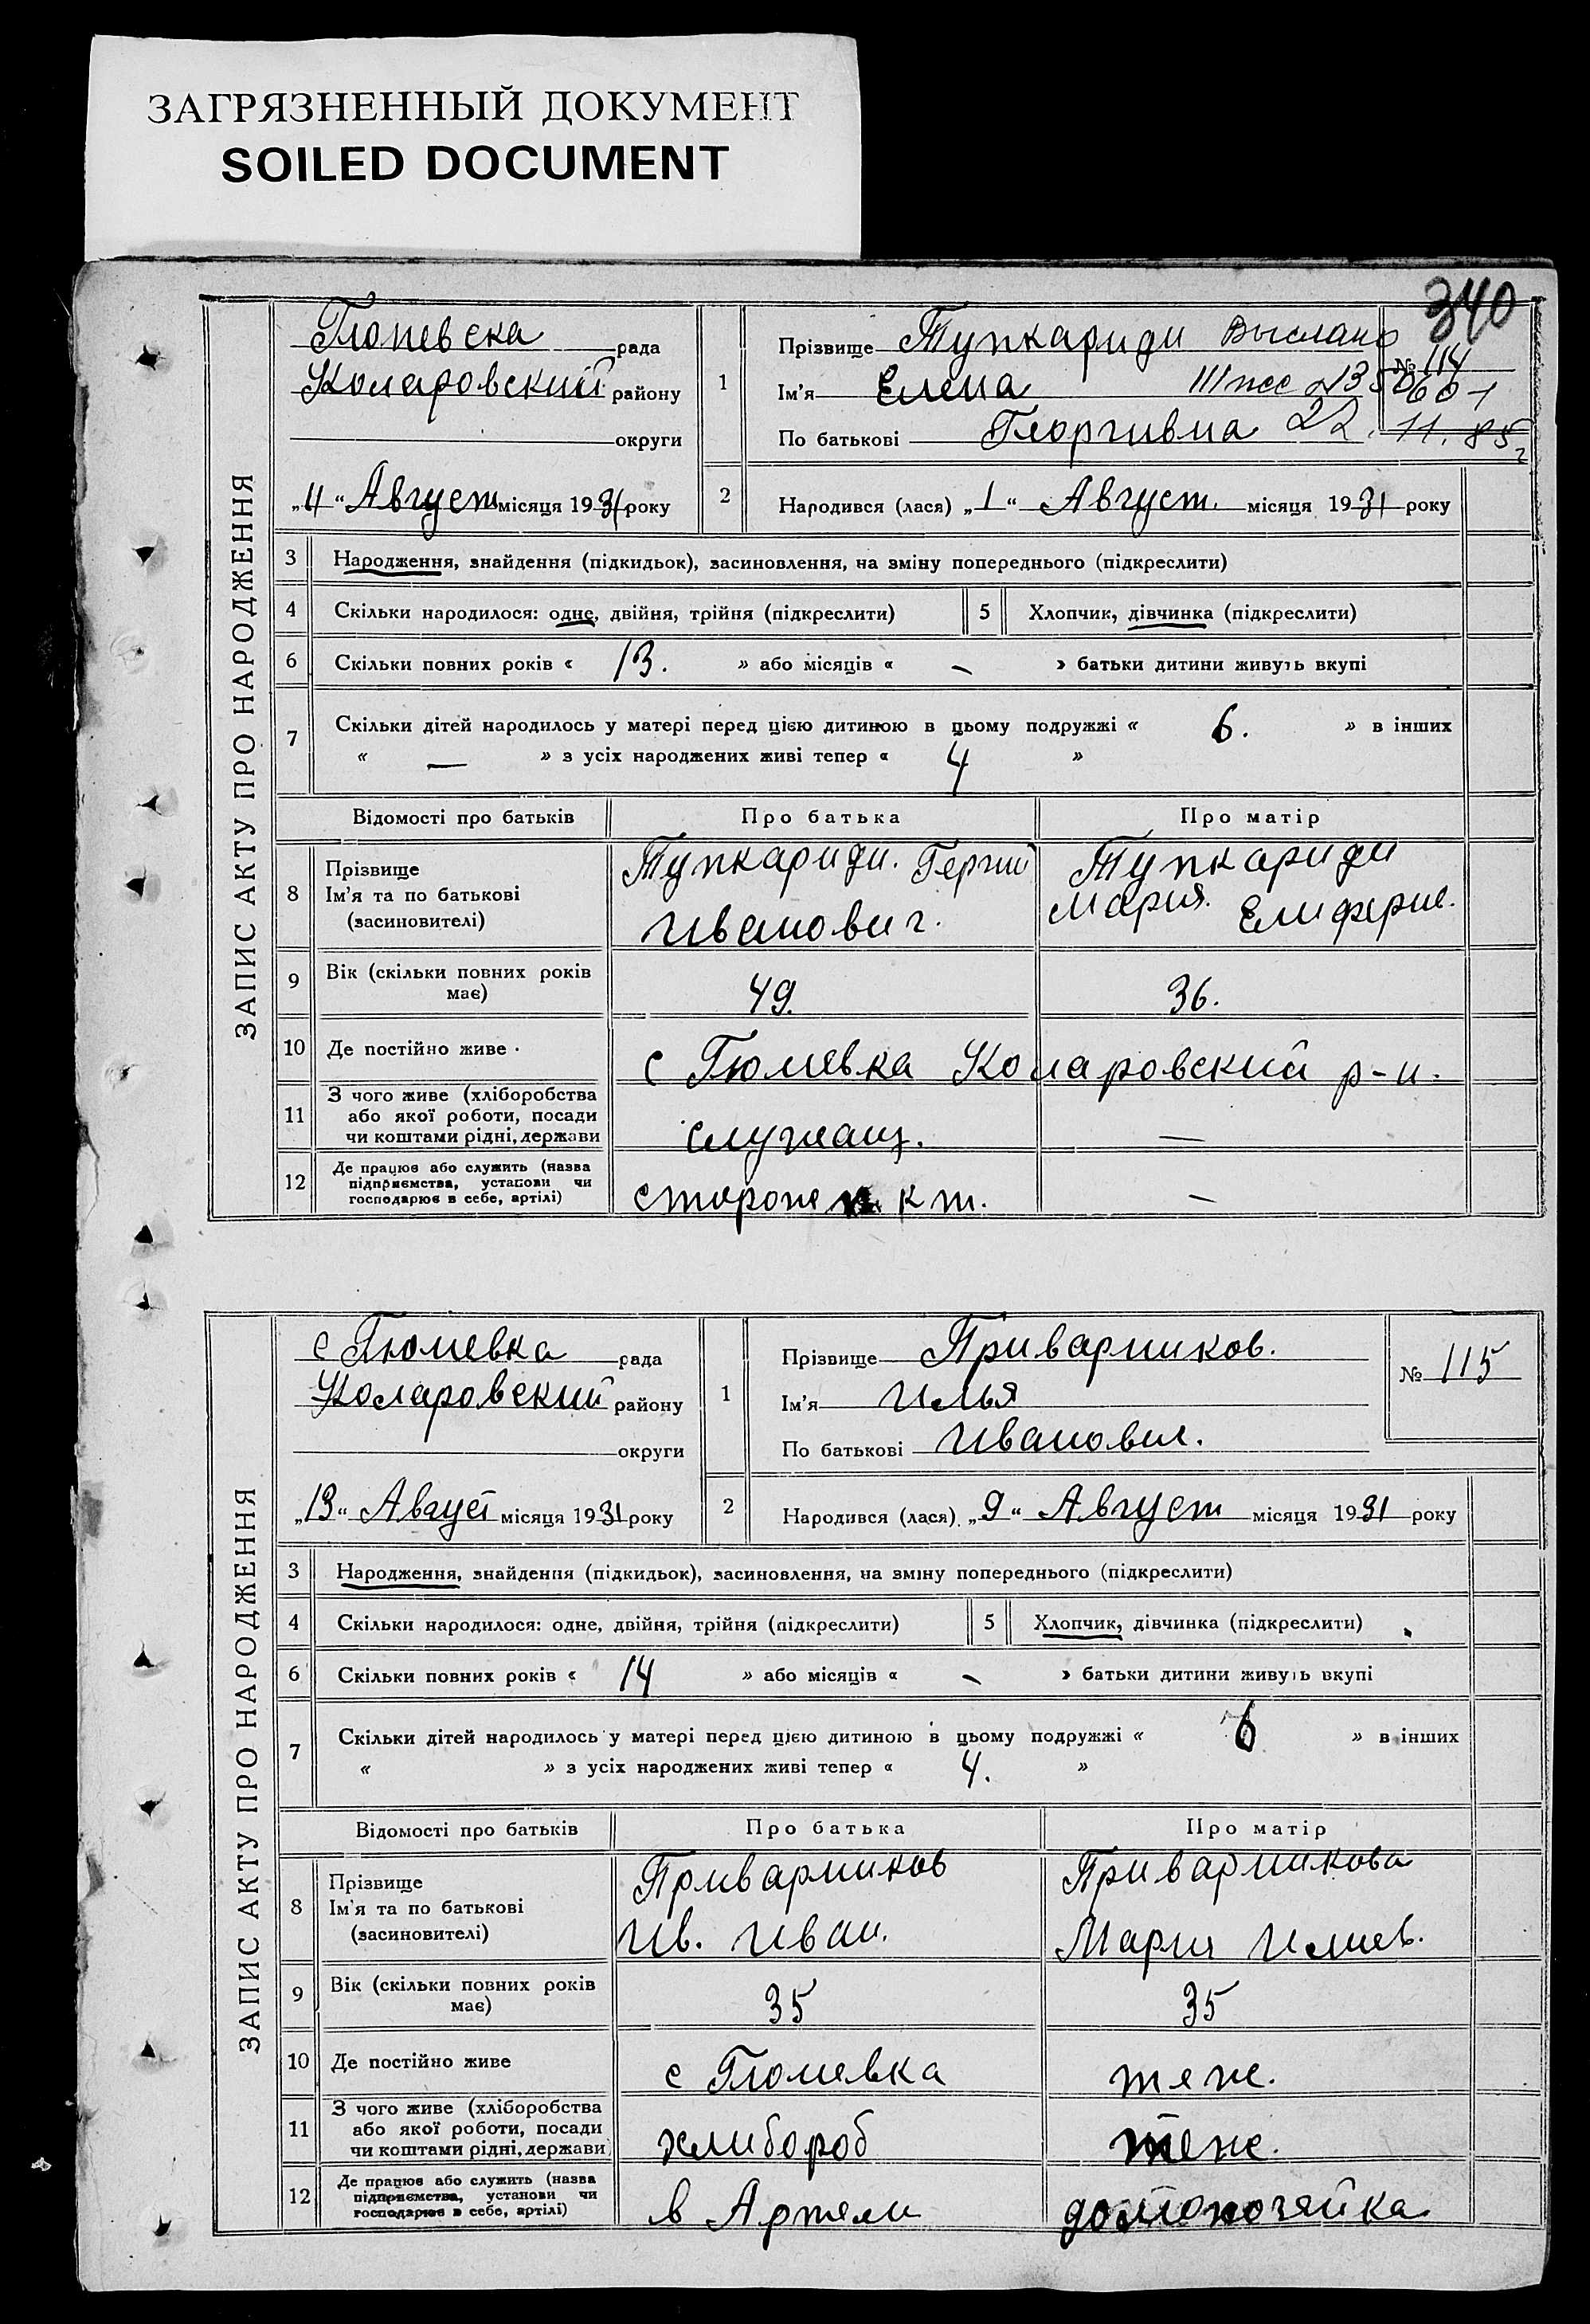 ЗАГРЯЗНЕННЫЙ ДОКУМЕНТ
SOILED DOCUMENT
340
ЗАПИС АКТУ ПРО НАРОДЖЕННЯ
рада
Коларовский району
округи
„4“ Август місяця 1931 року
1
Прізвище Тупкариди Выслано
№ 114
Ім'я Елена
По батькові Георгивна 22. 11. 85
2
Народився (лася) „1“ Август. місяця 1931 року
3 Народження, знайдення (підкидьок), засиновлення, на зміну попереднього (підкреслити)
4 Скільки народилося: одне, двійня, трійня (підкреслити) 5 Хлопчик, дівчинка (підкреслити)
6 Скільки повних років « 13. » або місяців « – » батьки дитини живуть вкупі
7 Скільки дітей народилось у матері перед цією дитиною в цьому подружжі « 6. » в інших
« — » з усіх народжених живі тепер « 4 »
Відомості про батьків Про батька Про матір
8 Прізвище
Ім'я та по батькові
(засиновителі)
Тупкариди. Гергий
Иванович.
Тупкариди
Мария. Елиферие.
9 Вік (скільки повних років
має)
49. 36.
10 Де постійно живе
с Гюневка Коларовский р-н.
11 З чого живе (хліборобства
або якої роботи, посади
чи коштами рідні, держави
служащ. —
12 Де працює або служить (назва
підприємства, установи чи
господарює в себе, артілі)
–
ЗАПИС АКТУ ПРО НАРОДЖЕННЯ
с Гюневка рада
Коларовский району
округи
„13“ Август місяця 1931 року
1
Прізвище Приварников.
№ 115
Ім'я Илья
По батькові Иванович.
2
Народився (лася) „9“ Август місяця 1931 року
3 Народження, знайдення (підкидьок), засиновлення, на зміну попереднього (підкреслити)
4 Скільки народилося: одне, двійня, трійня (підкреслити) 5 Хлопчик, дівчинка (підкреслити)
6 Скільки повних років « 14 » або місяців « – » батьки дитини живуть вкупі
7 Скільки дітей народилось у матері перед цією дитиною в цьому подружжі « 6 » в інших
« » з усіх народжених живі тепер « 4. »
Відомості про батьків Про батька Про матір
8 Прізвище
Ім'я та по батькові
(засиновителі)
Приварников
Ив. Иван.
Приварникова
Мария Илиев.
9 Вік (скільки повних років
має)
35 35
10 Де постійно живе
с Гюневка теже.
11 З чого живе (хліборобства
або якої роботи, посади
чи коштами рідні, держави
хлибороб теже.
12 Де працює або служить (назва
підприємства, установи чи
господарює в себе, артілі)
в Артели домохозяйка